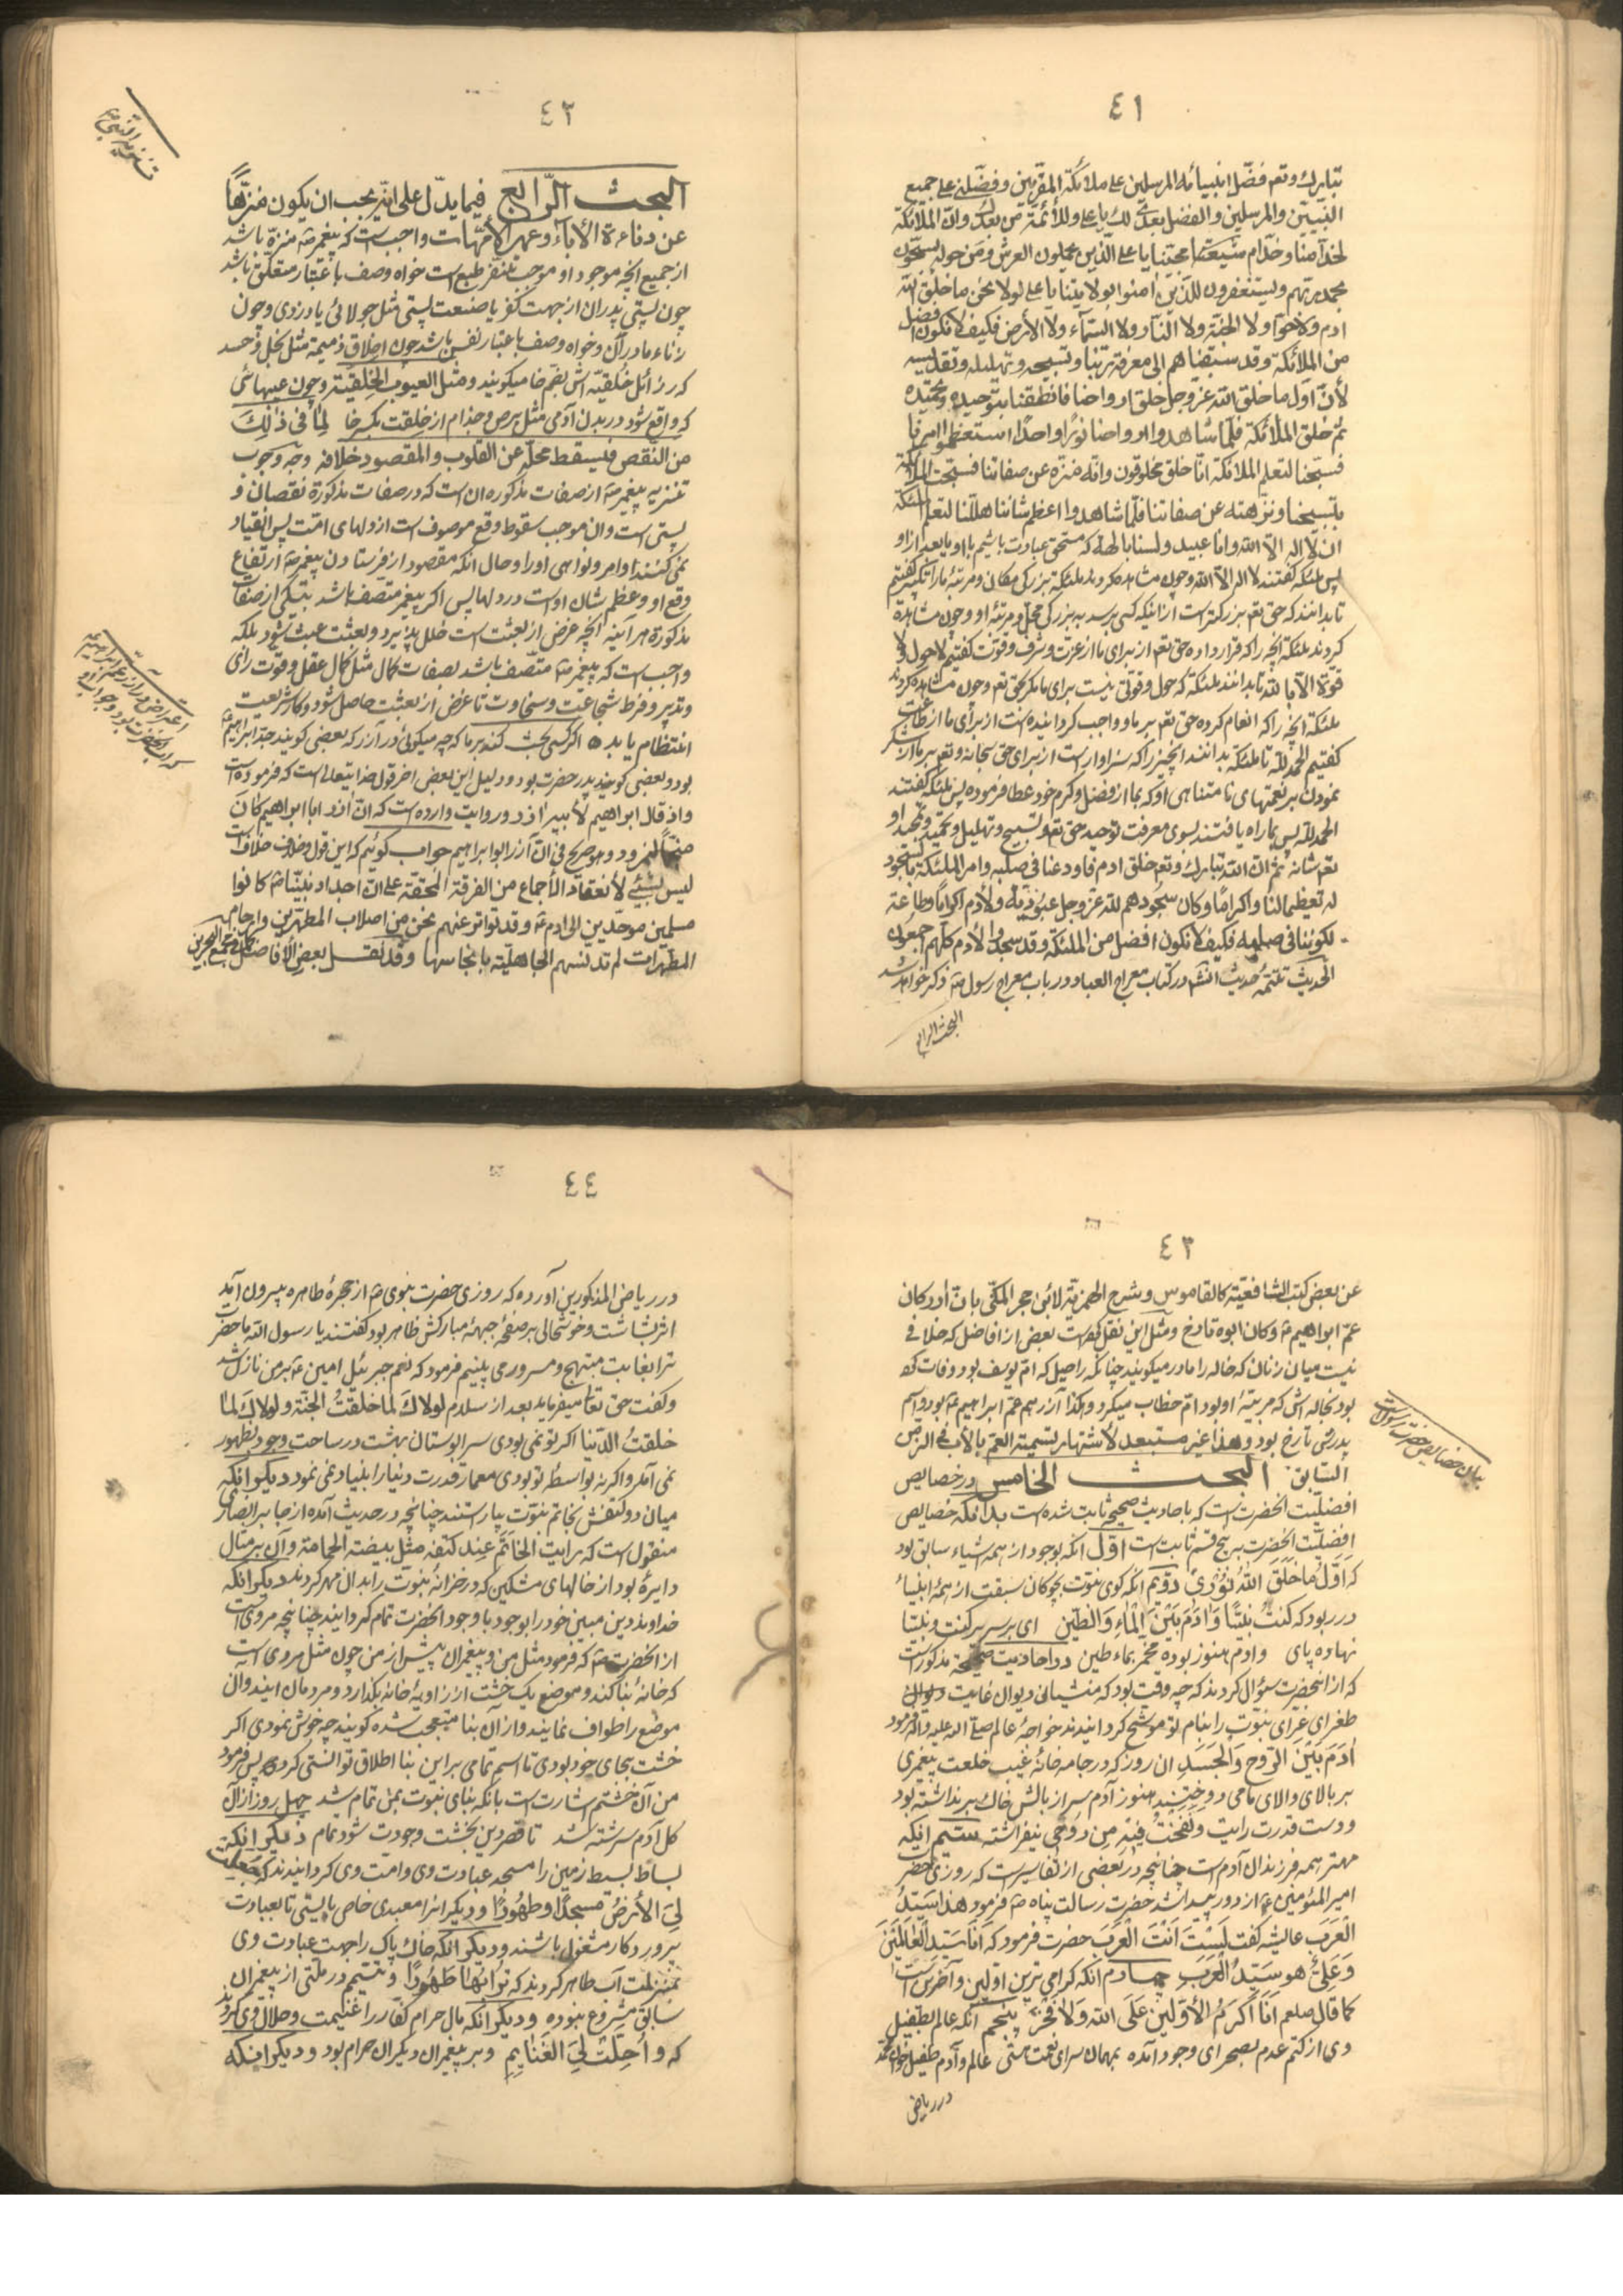 ٤١
تبارك وتعم فضّل انبيائه المرسلين على ملائكته المقرّبين وفضّلني على جميع
النبيّين والمرسلين والفضل بعدي لك يا على وللأئمّة من بعدك وانّ الملائكة
لخدّامنا وخدّام محبّينا يا على الّذين يحملون العرش ومن حوله يسبّحون
بحمد ربّهم ويستغفرون للّذين امنوا بولايتنا يا على لولا نحن ما خلق الله
ادم ولا حوّا ولا الجنّة ولا النّار ولا السّماء ولا الأرض فكيف لا نكون افضل
من الملائكة وقد سبقناهم الى معرفة ربّنا وتسبيحه وتهليله وتقديسه
لأنّ اوّل ما خلق الله عزّ وجل خلق ارواحنا فانطقنا بتوحيده وتحميده
ثمّ خلق الملائكة فلمّا شاهدوا ارواحنا نورًا واحدًا استعظموا امرنا
فسبّحنا لتعلم الملائكة انّا خلق مخلوقون وانّه منزه عن صفاتنا فسبّحت الملائكة
بتسبيحنا ونزّهته عن صفاتنا فلمّا شاهدوا اعظم شاننا هلّلنا لتعلم الملئكة
ان لا اله الّا الله وانّا عبيد ولسنا بالهة كه مستحق عبادت باشيم با او يا بعد از او
پس ملئكه كفتند لا اله الّا الله وچون مشاهده كردند ملئكه بزركى مكان ومرتبهٔ ما را تكبير كفتيم
تا بدانند كه حق تعم بزركتر است از اينكه كسى برسد به بزركى محل ومرتبهٔ او وچون مشاهده
كردند ملئكه آنچه را كه قرار داده حق تعم از براى ما از عزت وشرف وقوت كفتيم لا حول ولا
قوّة الّا بالله تا بدانند ملئكه كه حول وقوّتى نيست براى ما مكر بحق تعم وچون مشاهده كردند
ملئكه آنچه را كه انعام كرده حق تعم بر ما وواجب كردانيده است از براى ما از طاعت
كفتيم الحمد لله تا ملئكه بدانند آنچيز را كه سزاوار است از براى حق سبحانه وتعم بر ما از شكر
نمودن بر نعمتهاى نامتناهى او كه بما از فضل وكرم خود عطا فرموده پس ملئكه كفتند
الحمد لله پس بما راه يافتند بسوى معرفت توحيد حق تعم وتسبيح وتهليل وتحميد وتمجيد او
تعم شانه ثمّ انّ الله تبارك وتعم خلق ادم فاودعنا فى صلبه وامر الملئكة بالسّجود
له تعظيما لنا واكرامًا وكان سجودهم لله عزّ وجل عبوديّة ولأدم اكرامًا وطاعة
لكوننا فى صلبه فكيف لا نكون افضل من الملئكة وقد سجدوا لأدم كلّهم اجمعون
الحديث تتمّهٔ حديث انشم در كتاب معراج العباد در باب معراج رسول ص ذكر خواهد شد
البحث الرابع
٤٢
تنزيه النّبى ص
البحث الرّابع فيما يدّل على انّه يجب ان يكون منزّهًا
عن دناءة الأباء وعهر الأمّهات واجب است كه پيغمر ص منزّه باشد
از جميع آنچه موجود او موجب تنفّر طبع است خواه وصف باعتبار متعلّق باشد
چون پستى پدران از جهت كفر يا صنعت پستى مثل جولائى يا دزدى وچون
زناء مادران وخواه وصف باعتبار نفس باشد چون اخلاق ذميمة مثل بخل وحسد
كه رزائل خُلقيّه اش بضم خا ميكويند ومثل العيوب الخِلقيّة وچون عيبهائى
كه واقع شود در بدن آدمى مثل برص وجذام از خِلقت بكسر خا لما فى ذلك
من النقص فيسقط محلّه عن القلوب والمقصود خلافه وجه وجوب
تنزيه پيغمر ص از صفات مذكوره ان است كه در صفات مذكورة نقصان و
پستى است وان موجب سقوط وقع موصوف است از دلهاى امّت پس انقياد
نمى كنند اوامر ونواهى او را وحال انكه مقصود از فرستادن پيغمر ص ارتفاع
وقع او وعظم شان او است در دلها پس اكر پيغمر متصف باشد بيكى از صفات
مذكورة هر آينه آنچه غرض از بعثت است خلل پذيرد وبعثت عبث شود بلكه
واجب است كه پيغمر ص متّصف باشد بصفات كمال مثل كمال عقل وقوت راى
وتدبير وفرط شجاعت وسخاوت تا غرض از بعثت حاصل شود وكار شريعت
انتظام يابد اكر كسى بحث كند بر ما كه چه ميكوئى در آزر كه بعضى كويند جدّ ابراهيم ع
بود وبعضى كويند پدر حضرت بود ودليل اين بعض اخر قول خدايتعالى است كه فرموده است
واذ قال ابراهيم لأبيه اذر ودر روايت وارده است كه انّ اذر ابا ابراهيم كان
منجّمًا لنمرود وهو صريح فى انّ آزر ابو ابراهيم جواب كوئيم كه اين قول وخلاف خلاف است
ليس بشيئ لأنعقاد الأجماع من الفرقة المحقّة على انّ اجداد نبيّنا ص كانوا
مسلمين موحّدين الى ادم ع وقد تواتر عنهم نحن من اصلاب المطهّرين وارحام
المطهّرات لم تدنسهم الجاهليّة بانجاسها وقد نقل بعض الأفاضل فى مجمع البحرين
اعتراض در آزر عم ابراهيم ع
كه اب آنحضرت بود وجواب او
٤٣
عن بعض كتب الشافعيّة كالقاموس وشرح الهمزيّة لأبن حجر المكّى بانّ اذر كان
عمّ ابراهيم ع وكان ابوه تارخ ومثل اين نقل كرده است بعض از افاضل كه خلافى
نيست ميان زنان كه خاله را مادر ميكويند چنانكه راحيل كه امّ يوسف بود وفات كرد
بود بخاله اش كه مربيّهٔ او بود امّ خطاب ميكرد وهكذا آزر هم عمّ ابراهيم ع بود واسم
پدرش تارخ بود وهذا غير مستبعد لأشتهار تسمية العمّ بالأب فى الزمن
السّابق البحث الخامس در خصايص
افضليّت آنحضرت است كه باحاديث صحيحه ثابت شده است بدانكه خصايص
افضليّت آنحضرت بر پنج قسم ثابت است اوّل انكه بوجود از همه اشياء سابق بود
كه اَوَّلُ ما خَلَقَ اللهُ نُورى دوّيم انكه كوى نبوّت بچوكان سبقت از همهٔ انبياء
در ربود كه كنتُ نبيًّا وَادَم بَيْنَ الماءِ وَالطّين اى بر سر بر كنت ونبيّا
نهاده پاى وادم هنوز بوده مخمّر بماء طين در احاديث صحيحه مذكور است
كه از انحضرت سؤال كردند كه چه وقت بود كه منشيانِ ديوان عنايت ديوان
طغراى غرّاى نبوّت را بنام تو موشّح كردانيدند خواجهٔ عالم صلّى الله عليه واله فرمود
ادَمَ بَيْنَ الرّوحِ وَالجَسَدِ ان روز كه در جامه خانهٔ غيب خلعت پيغمرى
بر بالاى والاى ما مى دوختند هنوز آدم سر از بالش خاك بر نداشته بود
ودست قدرت رايت ونَفَختُ فيهِ مِن روُحى نيفراشته ستيم انكه
مهتر همه فرزندان آدم است چنانچه در بعضى از تفاسير است كه روزى حضرت
امير المئومنين ع از دور پيدا شد حضرت رسالت پناه ص فرمود هذا سَيّدُ
الْعَرَبِ عايشه كفت لَسْتَ اَنْتَ الْعَرَبَ حضرت فرمود كه اَنَا سَيّد الْعَالَمينَ
وَعَلىٌّ هو سَيّدُ الْعَرَبِ چهارم انكه كرامى ترين اوّلين وآخرين است
كما قال صلعم اَنَا اَكْرَمُ الأوّلينَ عَلَى الله وَلا فَخْرَ پنجم انكه عالم بطفيل
وى از كتم عدم بصحراى وجود آمده بمهمان سراى نعمت هستى عالم وآدم طفيل خوان محمّد
در رياض
بيان خصايص حضرت رسول است
٤٤
در رياض المذكورين آورده كه روزى حضرت نبوى ص از حجرهٔ طاهره بيرون آمد
اثر بشاشت وخوشحالى بر صفحهٔ جبههٔ مباركش ظاهر بود كفتند يا رسول الله يا حضرت
ترا بغايت مبتهج ومسرور مى بينيم فرمود كه نعم جبرئيل امين ع بر من نازل شد
وكفت حق تعا ميفرمايد بعد از سلام لولاك لما خلقتُ الجنّة ولولاك لما
خلقتُ الدّنيا اكر تو نمى بودى سرابوستان بهشت در ساحت وجود بظهور
نمى آمد واكر نه بواسطهٔ تو بودى معمار قدرت دنيا را بنياد نمى نمود ديكر انكه
ميان دو كتفش بخاتم نبوّت بياراستند چنانچه در حديث آمده از جابر انصارى
منقول است كه رايت الخَاتَمَ عِند كتفه مثل بيضته الحمامة وآن بر مثال
دايرهٔ بود از خالهاى مشكين كه در خزانهٔ نبوّت را بدان مهر كردند ديكر انكه
خداوند دين مبين خود را بوجود با وجود آنحضرت تمام كردانيد چنانچه مروى است
از آنحضرت ص كه فرمود مثل من وپيغمران پيش از من چون مثل مردى است
كه خانهٔ بنا كند وموضع يك خشت از زاويهٔ خانه بكذارد ومردمان آيند وان
موضع را طواف نمايند واز ان بنا متعجّب شده كويند چه خوش نمودى اكر
خشت بجاى خود بودى تا اسم تمامى بر اين بنا اطلاق توانستى كرد پس فرمود
من آن خشتم اشارت است بانكه بناى نبوت بمن تمام شد چهل روز از آن
كل آدم سرشته شد تا قصر دين بخشت وجودت شود تمام ديكر انكه
بساط بسيط زمين را مسجد عبادت وى وامت وى كردانيدند كه جعلت
لىَ الأرضُ مَسجدًا وطَهُورًا وديكر انبيا را معبدى خاص بايستى تا بعبادت
پروردكار مشغول باشند وديكر انكه خاك پاك را جهت عبادت وى
بمنزلت آب طاهر كردند كه تُرابُها طَهُورًا وتيمّم در ملّتى از پيغمران
سابق مشروع نبوده وديكر انكه مال حرام كفّار را غنيمت وحلال وى كردند
كه وأُحِلّت لِىَ الغَنايِمِ وبر پيغمران ديكر ان حرام بود وديكر انكه